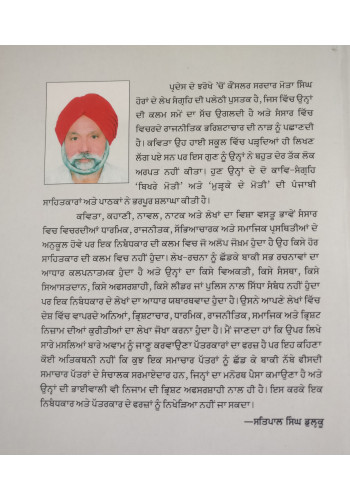 ਪ੍ਰਦੇਸ ਦੇ ਝਰੋਖੇ 'ਚੋਂ ਕੌਂਸਲਰ ਸਰਦਾਰ ਮੋਤਾ ਸਿੰਘ
ਹੋਰਾਂ ਦੇ ਲੇਖ ਸੰਗ੍ਰਹਿ ਦੀ ਪਲੇਠੀ ਪੁਸਤਕ ਹੈ, ਜਿਸ ਵਿੱਚ ਉਨ੍ਹਾਂ
ਦੀ ਕਲਮ ਸਮੇਂ ਦਾ ਸੱਚ ਉਗਲਦੀ ਹੈ ਅਤੇ ਸੰਸਾਰ ਵਿੱਚ
ਵਿਚਰਦੇ ਰਾਜਨੀਤਕ ਭਰਿਸ਼ਟਾਚਾਰ ਦੀ ਨਾੜ ਨੂੰ ਪਛਾਣਦੀ
ਹੈ। ਕਵਿਤਾ ਉਹ ਹਾਈ ਸਕੂਲ ਵਿੱਚ ਪੜ੍ਹਦਿਆਂ ਹੀ ਲਿਖਣ
ਲੱਗ ਪਏ ਸਨ ਪਰ ਇਸ ਗੁਣ ਨੂੰ ਉਨ੍ਹਾਂ ਨੇ ਬਹੁਤ ਦੇਰ ਤੱਕ ਲੋਕ
ਅਰਪਤ ਨਹੀਂ ਕੀਤਾ। ਹੁਣ ਉਨ੍ਹਾਂ ਦੇ ਦੋ ਕਾਵਿ-ਸੰਗ੍ਰਹਿ
'ਬਿਖਰੇ ਮੋਤੀ' ਅਤੇ 'ਮੁੜ੍ਹਕੇ ਦੇ ਮੋਤੀ' ਦੀ ਪੰਜਾਬੀ
ਸਾਹਿਤਕਾਰਾਂ ਅਤੇ ਪਾਠਕਾਂ ਨੇ ਭਰਪੂਰ ਸ਼ਲਾਘਾ ਕੀਤੀ ਹੈ।
ਕਵਿਤਾ, ਕਹਾਣੀ, ਨਾਵਲ, ਨਾਟਕ ਅਤੇ ਲੇਖਾਂ ਦਾ ਵਿਸ਼ਾ ਵਸਤੂ ਭਾਵੇਂ ਸੰਸਾਰ
ਵਿਚ ਵਿਚਰਦੀਆਂ ਧਾਰਮਿਕ, ਰਾਜਨੀਤਕ, ਸੱਭਿਆਚਾਰਕ ਅਤੇ ਸਮਾਜਿਕ ਪ੍ਰਸਥਿਤੀਆਂ ਦੇ
ਅਨੁਕੂਲ ਹੋਵੇ ਪਰ ਇਕ ਨਿਬੰਧਕਾਰ ਦੀ ਕਲਮ ਵਿਚ ਜੋ ਅਲੋਪ ਜੋਖ਼ਮ ਹੁੰਦਾ ਹੈ ਉਹ ਕਿਸੇ ਹੋਰ
ਸਾਹਿਤਕਾਰ ਦੀ ਕਲਮ ਵਿਚ ਨਹੀਂ ਹੁੰਦਾ। ਲੇਖ-ਰਚਨਾ ਨੂੰ ਛੱਡਕੇ ਬਾਕੀ ਸਭ ਰਚਨਾਵਾਂ ਦਾ
ਆਧਾਰ ਕਲਪਨਾਤਮਕ ਹੁੰਦਾ ਹੈ ਅਤੇ ਉਨ੍ਹਾਂ ਦਾ ਕਿਸੇ ਵਿਅਕਤੀ, ਕਿਸੇ ਸੰਸਥਾ, ਕਿਸੇ
ਸਿਆਸਤਦਾਨ, ਕਿਸੇ ਅਫਸਰਸ਼ਾਹੀ, ਕਿਸੇ ਲੀਡਰ ਜਾਂ ਪੁਲਿਸ ਨਾਲ ਸਿੱਧਾ ਸੰਬੰਧ ਨਹੀਂ ਹੁੰਦਾ
ਪਰ ਇਕ ਨਿਬੰਧਕਾਰ ਦੇ ਲੇਖਾਂ ਦਾ ਆਧਾਰ ਯਥਾਰਥਵਾਦ ਹੁੰਦਾ ਹੈ। ਉਸਨੇ ਆਪਣੇ ਲੇਖਾਂ ਵਿੱਚ
ਦੇਸ਼ ਵਿੱਚ ਵਾਪਰਦੇ ਅਨਿਆਂ, ਭ੍ਰਿਸ਼ਟਾਚਾਰ, ਧਾਰਮਿਕ, ਰਾਜਨੀਤਿਕ, ਸਮਾਜਿਕ ਅਤੇ ਭ੍ਰਿਸ਼ਟ
ਨਿਜ਼ਾਮ ਦੀਆਂ ਕੁਰੀਤੀਆਂ ਦਾ ਲੇਖਾ ਜੋਖਾ ਕਰਨਾ ਹੁੰਦਾ ਹੈ। ਮੈਂ ਜਾਣਦਾ ਹਾਂ ਕਿ ਉਪਰ ਲਿਖੇ
ਸਾਰੇ ਮਸਲਿਆਂ ਬਾਰੇ ਅਵਾਮ ਨੂੰ ਜਾਣੂ ਕਰਵਾਉਣਾ ਪੱਤਰਕਾਰਾਂ ਦਾ ਫਰਜ਼ ਹੈ ਪਰ ਇਹ ਕਹਿਣਾ
ਕੋਈ ਅਤਿਕਥਨੀ ਨਹੀਂ ਕਿ ਕੁਝ ਇਕ ਸਮਾਚਾਰ ਪੱਤਰਾਂ ਨੂੰ ਛੱਡ ਕੇ ਬਾਕੀ ਨੱਬੇ ਫੀਸਦੀ
ਸਮਾਚਾਰ ਪੱਤਰਾਂ ਦੇ ਸੰਚਾਲਕ ਸਰਮਾਏਦਾਰ ਹਨ, ਜਿਨ੍ਹਾਂ ਦਾ ਮਨੋਰਥ ਪੈਸਾ ਕਮਾਉਣਾ ਹੈ ਅਤੇ
ਉਨ੍ਹਾਂ ਦੀ ਭਾਈਵਾਲੀ ਵੀ ਨਿਜ਼ਾਮ ਦੀ ਭ੍ਰਿਸ਼ਟ ਅਫਸਰਸ਼ਾਹੀ ਨਾਲ ਹੀ ਹੈ। ਇਸ ਕਰਕੇ ਇਕ
ਨਿਬੰਧਕਾਰ ਅਤੇ ਪੱਤਰਕਾਰ ਦੇ ਫਰਜ਼ਾਂ ਨੂੰ ਨਿਖੇੜਿਆ ਨਹੀਂ ਜਾ ਸਕਦਾ।
—ਸਤਿਪਾਲ ਸਿੰਘ ਡੁਲ੍ਹਕੂ